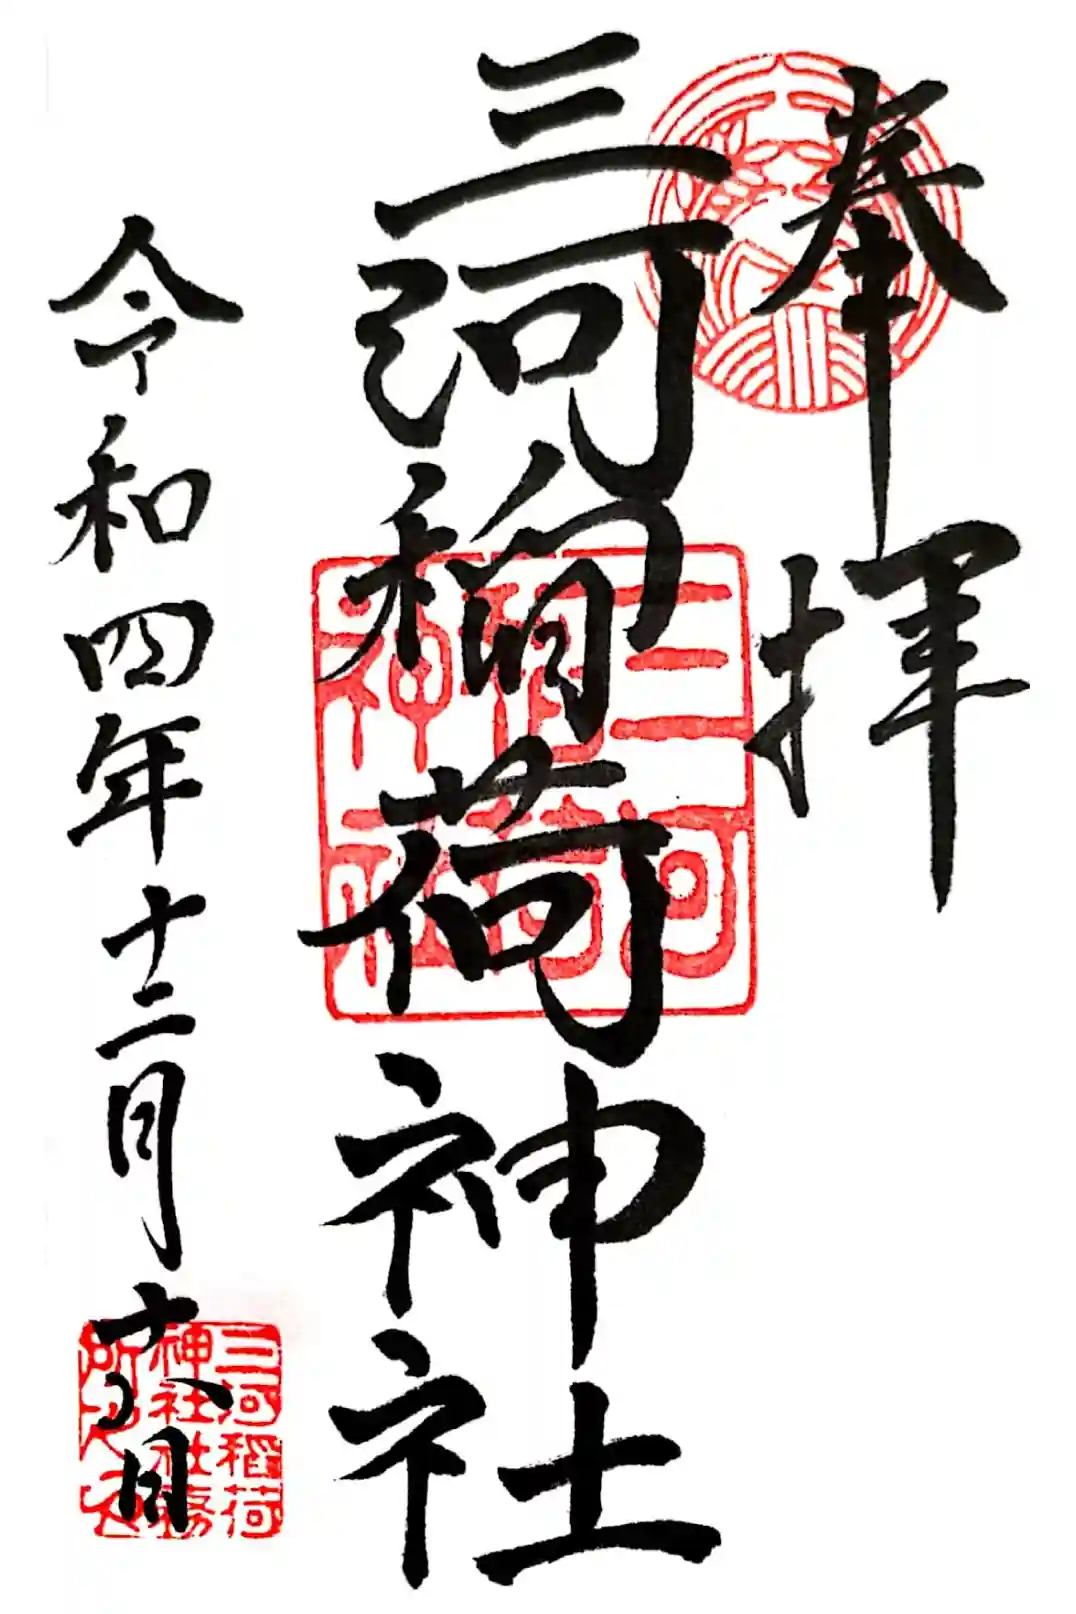 奉拝
三河稲荷神社
三河稲荷神社
令和四年十二月十八日
三河稲荷
神社社務